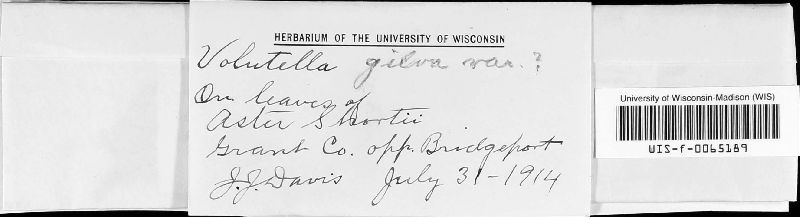 HERBARIUM OF THE UNIVERSITY OF WISCONSIN
Volutella gilva var. ?
On leaves of
Aster Shortii
Grant Co. opp. Bridgeport
J.J. Davis July 31-1914
University of Wisconsin-Madison (WIS)
WIS-f-0065189